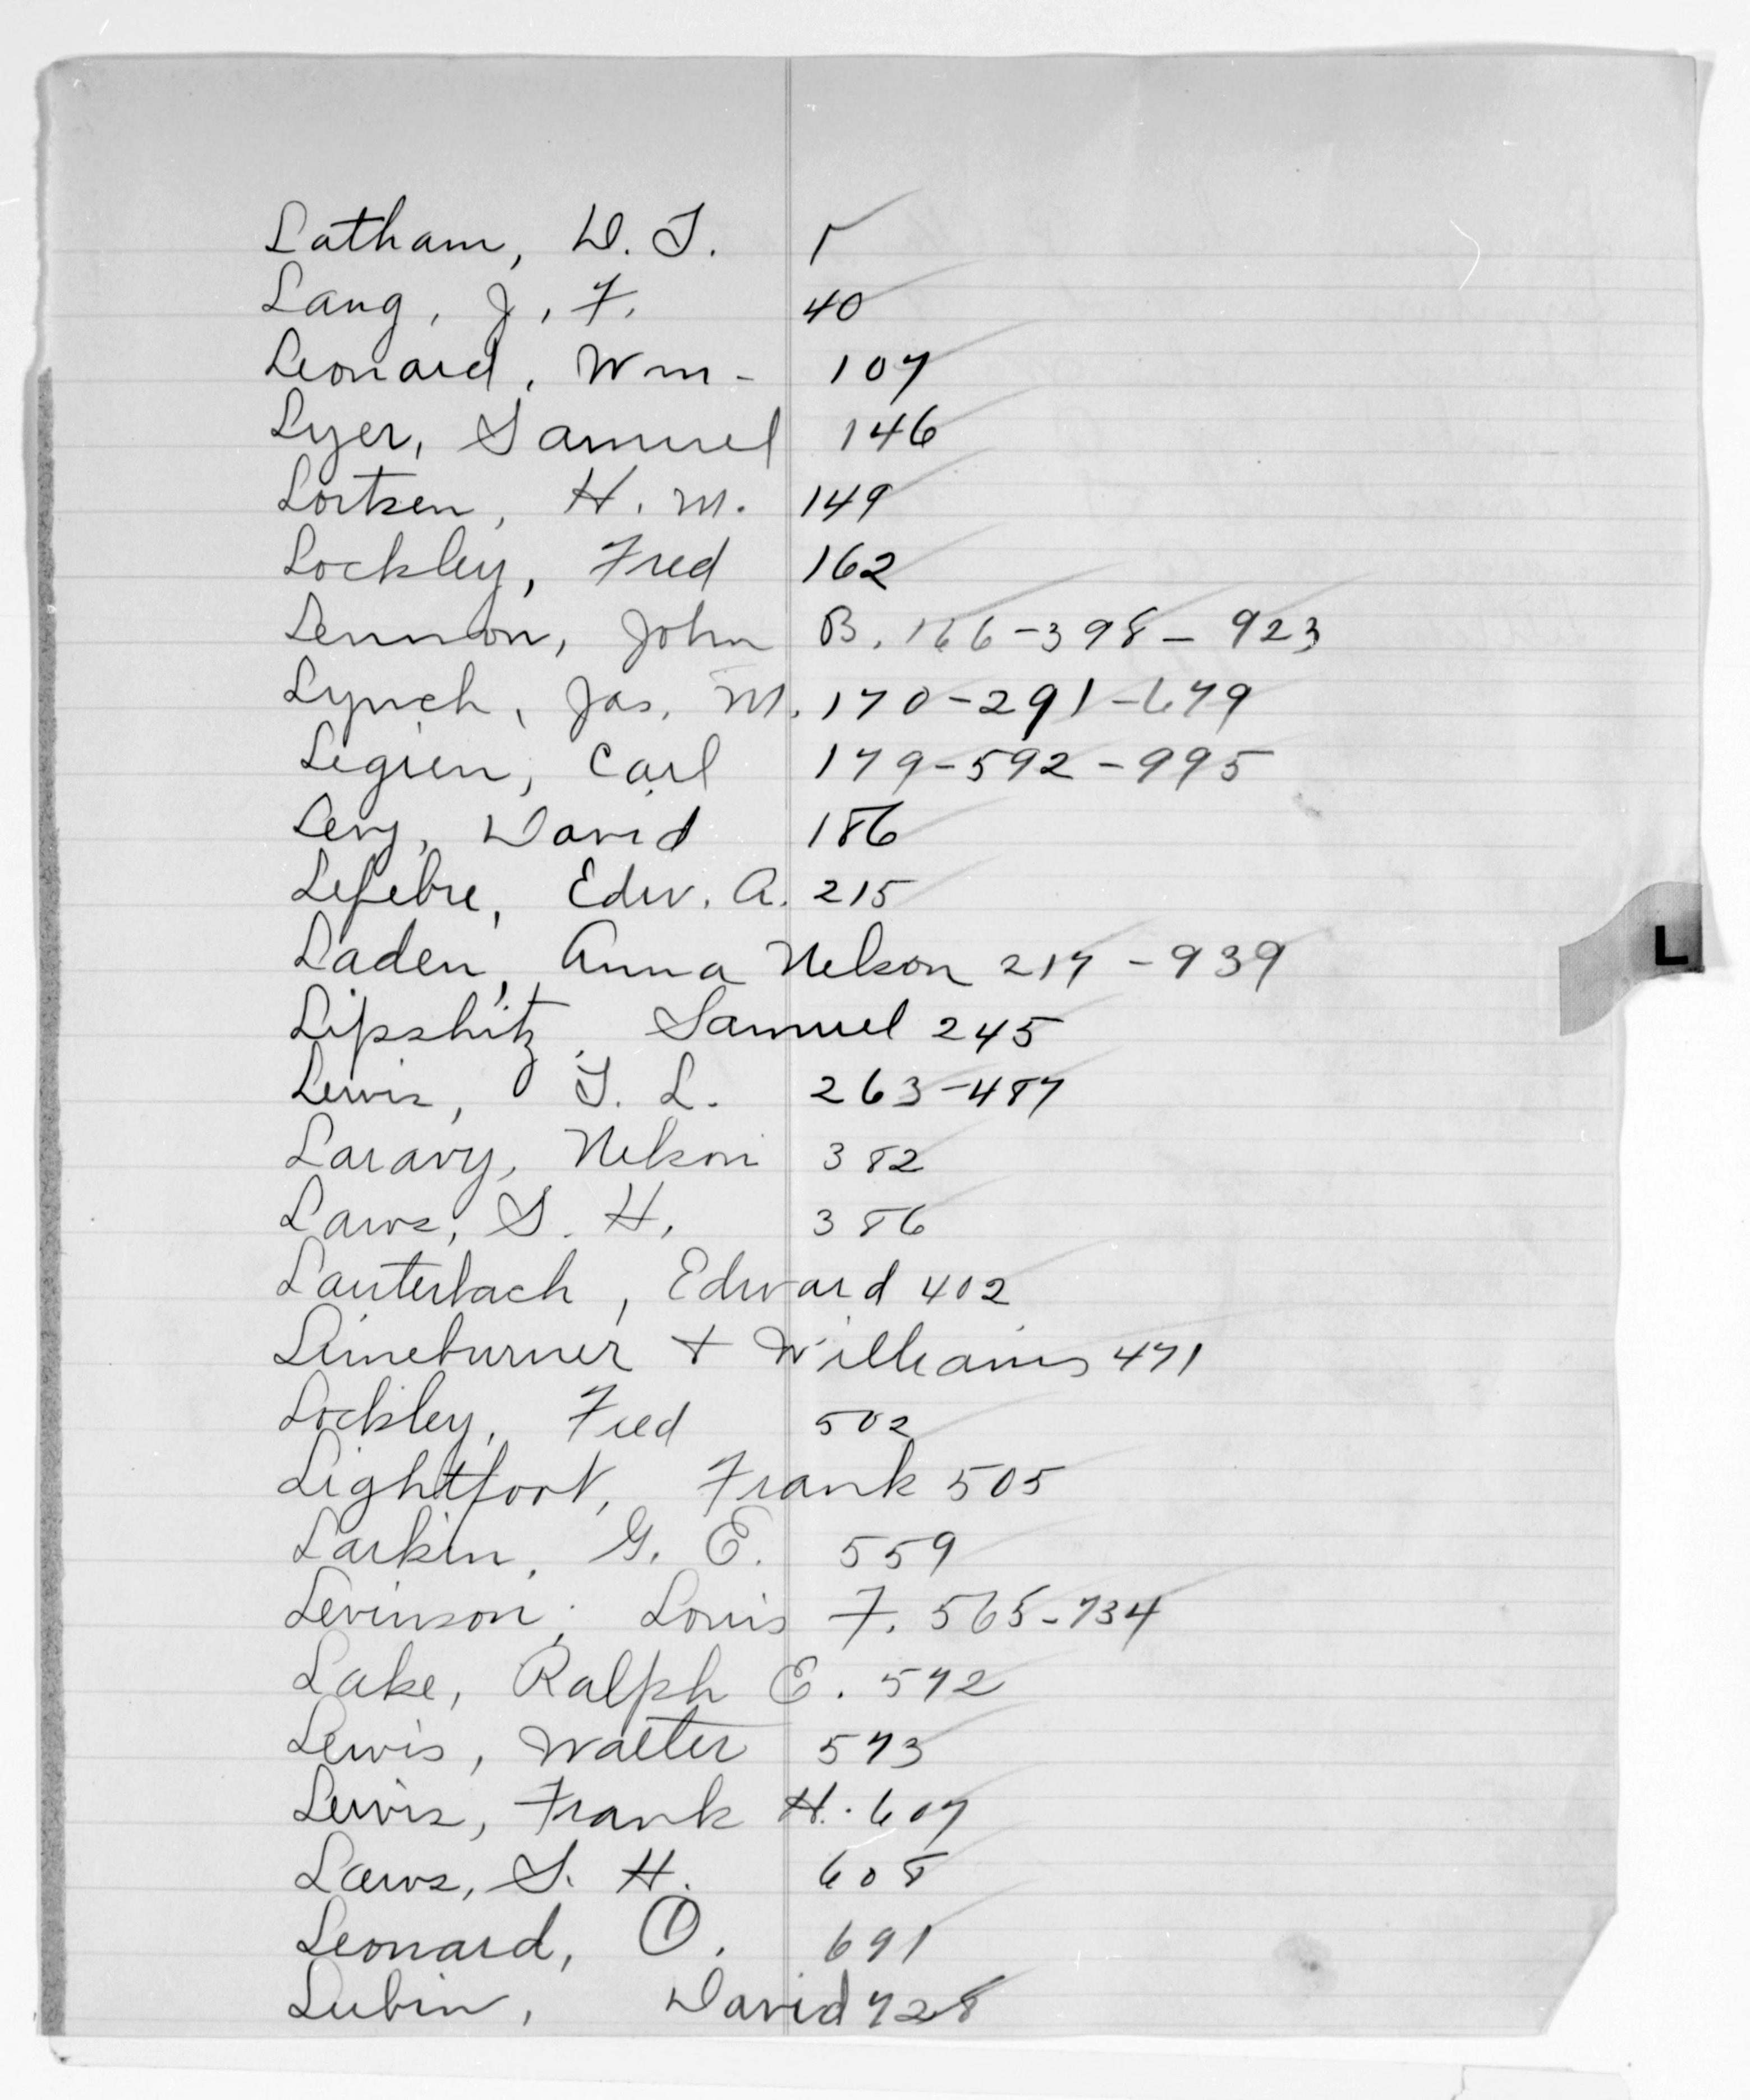 Latham, D. T.
Lang, J. F. 40
Leonard, Wm- 107
Lyer, Samuel 146
Lortsen, H. M. 149
Lockley, Fred 162
Lennon, John B. 166-398-923
Lynch, Jas. M. 170-291-679
Legien, Carl 179-592-995
Levy, David 186
Lefebre, Edw. A. 215
Laden, Anna Nelson 217-939
L
Lipshitz, Samuel 245
Lewis, T. L. 263-487
Laravy, Nelson 382
Laws, S. H. 386
Lauterbach, Edward 402
Limeburner + Williams 471
Lockley, Fred 502
Lightfoot, Frank 505
Larkin, G. E. 559
Levinson, Louis F. 565-734
Lake, Ralph E. 572
Lewis, Walter 573
Lewis, Frank H. 607
Laws, S. H. 608
Leonard, O. 691
Lubin, David 728